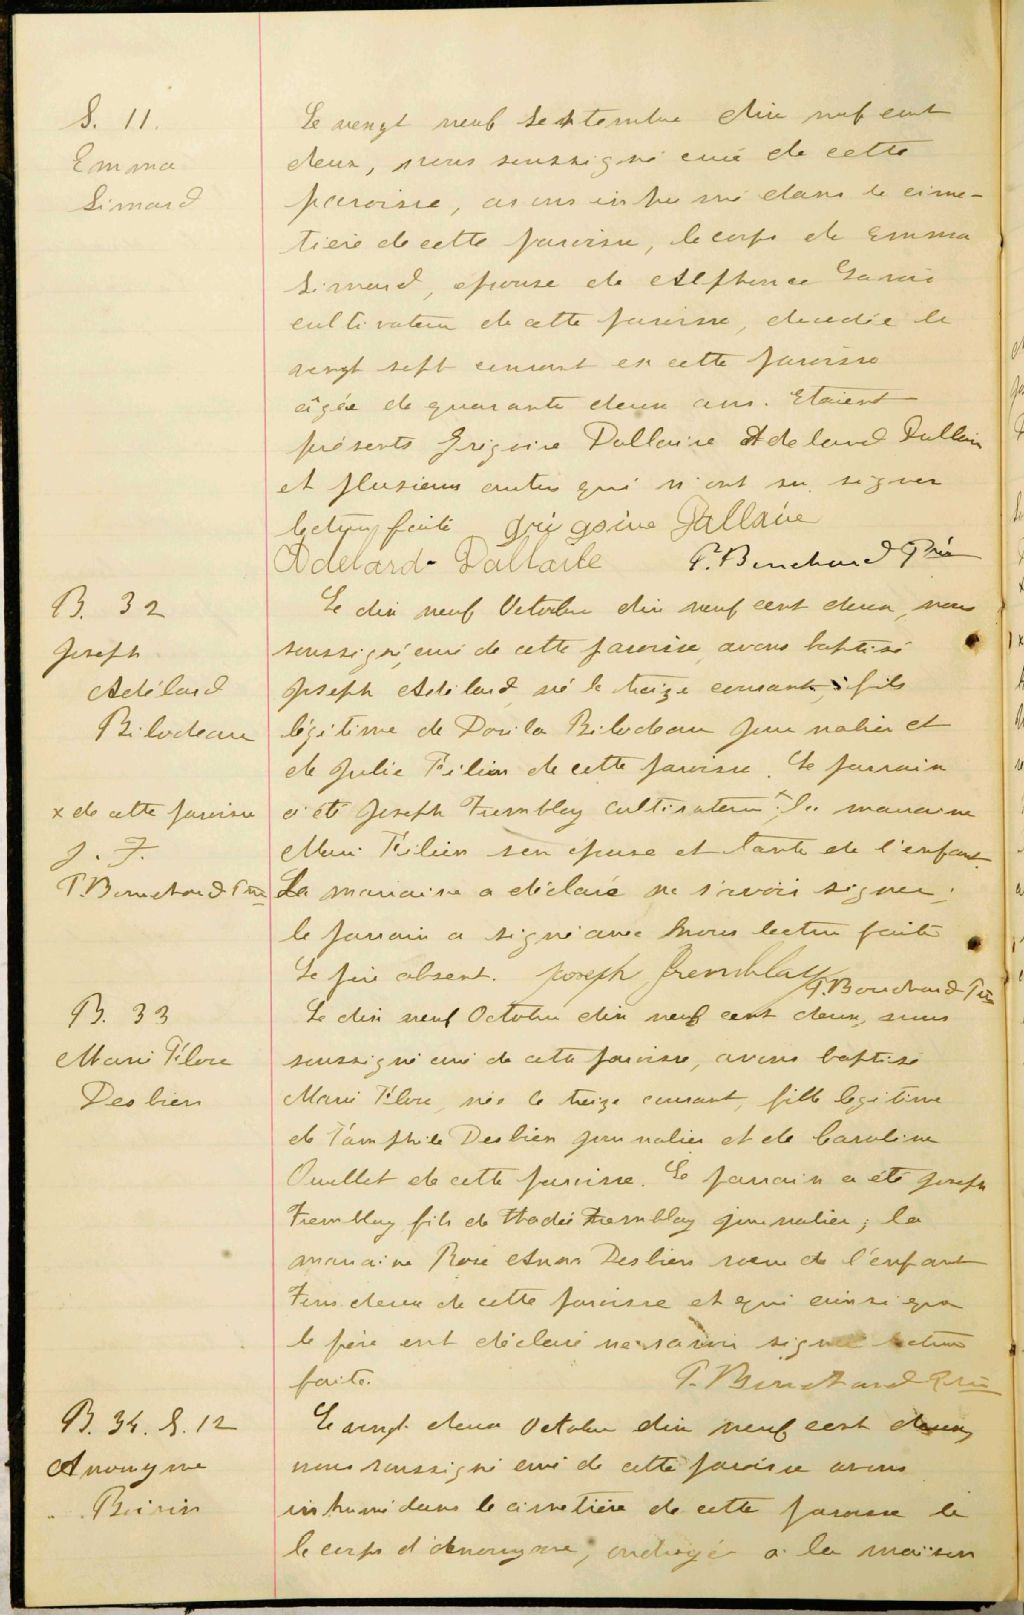 S. 11.
Emma
Simard
Le vengt neuf Septembre dix neuf cent
deux, nous soussigné curé de cette
paroisse, avons inhumé dans le cime-
tière de cette paroisse, le corps de Emma
Simard, épouse de Alphonse
cultivateur de cette paroisse, décédée le
vengt sept courant en cette paroisse
âgée de quarante deux ans. Etaient
présents Grégoire Dallaire Adelard Dallaire
et plusieurs autres qui n'ont su signer
lecture faite Grégoire Dallaire
Adelard Dallaire T. Bouchard Ptre
B. 32
Joseph
Adélard
Bilodeau
x de cette paroisse
J. F.
T. Bouchard Ptre
Le dix neuf Octobre dix neuf cent deux, nous
soussigné, curé de cette paroisse, avons baptisé
Joseph Adélard, né le treize courant, fils
légitime de Dorila Bilodeau journalier et
de Julie Filion de cette paroisse. Le parrain
a été Joseph Tremblay cultivateur x la marraine
Marie Filion son épouse et tante de l'enfant
La marraine a déclaré ne savoir signer;
le parrain a signé avec nous lecture faite
Le père absent. Joseph Tremblay
T. Bouchard Ptre
B. 33
Marie Flore
Desbien
Le dix neuf Octobre dix neuf cent deux, nous
soussigné curé de cette paroisse, avons baptisé
Marie Flore, née le treize courant, fille légitime
de Pamphile Desbien journalier et de Caroline
Ouellet de cette paroisse. Le parrain a été Joseph
Tremblay fils de Thadée Tremblay journalier; la
marraine Rose Anna Desbien soeur de l'enfant
Tous deux de cette paroisse et qui ainsi que
le père ont déclaré ne savoir signer lecture
faite. T. Bouchard Ptre
B. 34. S. 12
Anonyme
Boivin
Le vengt deux Octobre dix neuf cent deux,
nous soussigné curé de cette paroisse avons
inhumé dans le cimetière de cette paroisse le
le corps d'anonyme, ondoyé à la maison